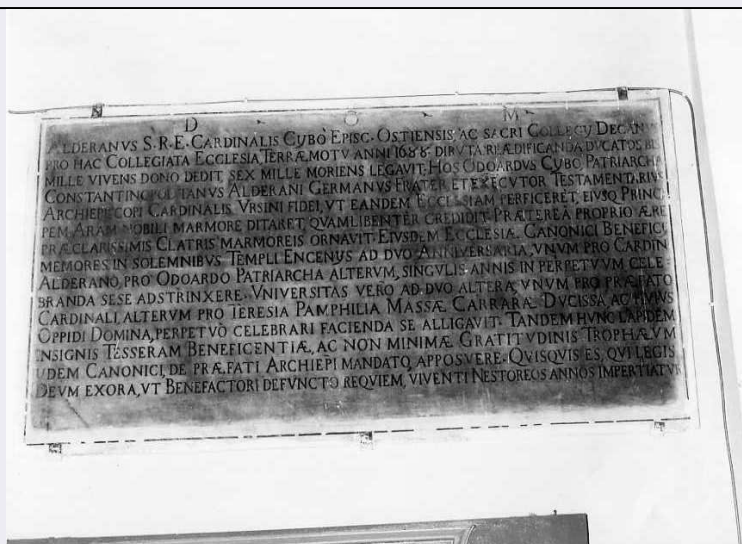 D O M
ALDERANVS S·R·E· CARDINALIS CYBÒ EPISC· OSTIENSIS AC SACRI COLLEGIJ DECANVS
PRO HAC COLLEGIATA ECCLESIA TERRÆMOTV ANNI 1688· DIRVTA REÆDIFICANDA DVCATOS
MILLE VIVENS DONO DEDIT SEX MILLE MORIENS LEGAVIT· HOS ODOARDVS CYBO PATRIARCHA
CONSTANTINOPOLITANVS ALDERANI GERMANVS FRATER ET EXECVTOR TESTAMENTARIVS
ARCHIEPISCOPI CARDINALIS VRSINI FIDEI, VT EANDEM ECCLESIAM PERFICERET, EIVSQ PRINCI
PEM ARAM NOBILI MARMORE DITARET, QVAM LIBENTER CREDIDIT· PRÆTEREA PROPRIO ÆRE
PRÆCLARISSIMIS CLATRIS MARMOREIS ORNAVIT· EIVSDEM ECCLESIÆ CANONICI BENEFICIJ
MEMORES IN SOLEMNIBVS TEMPLI ENCENIJS AD DVO ANNIVERSARIA, VNVM PRO CARDIN
ALDERANO, PRO ODOARDO PATRIARCHA ALTERVM, SINGVLIS ANNIS IN PERPETVVM CELE-
BRANDA SESE ADSTRINXERE· VNIVERSITAS VERO AD DVO ALTERA, VNVM PRO PRÆFATO
CARDINALI, ALTERVM PRO TERESIA PAMPHILIA MASSÆ CARRARÆ DVCISSA, AC HVIVS
OPPIDI DOMINA, PERPETVÒ CELEBRARI FACIENDA SE ALLIGAVIT· TANDEM HVNC LAPIDEM
INSIGNIS TESSERAM BENEFICENTIÆ, AC NON MINIMÆ GRATITVDINIS TROPHÆVM
IJDEM CANONICI, DE PRÆFATI ARCHIEPI MANDATO, APPOSVERE· QVISQVIS ES, QVI LEGIS
DEVM EXORA, VT BENEFACTORI DEFVNCTO REQVIEM, VIVENTI NESTOREOS ANNOS IMPERTIATVR